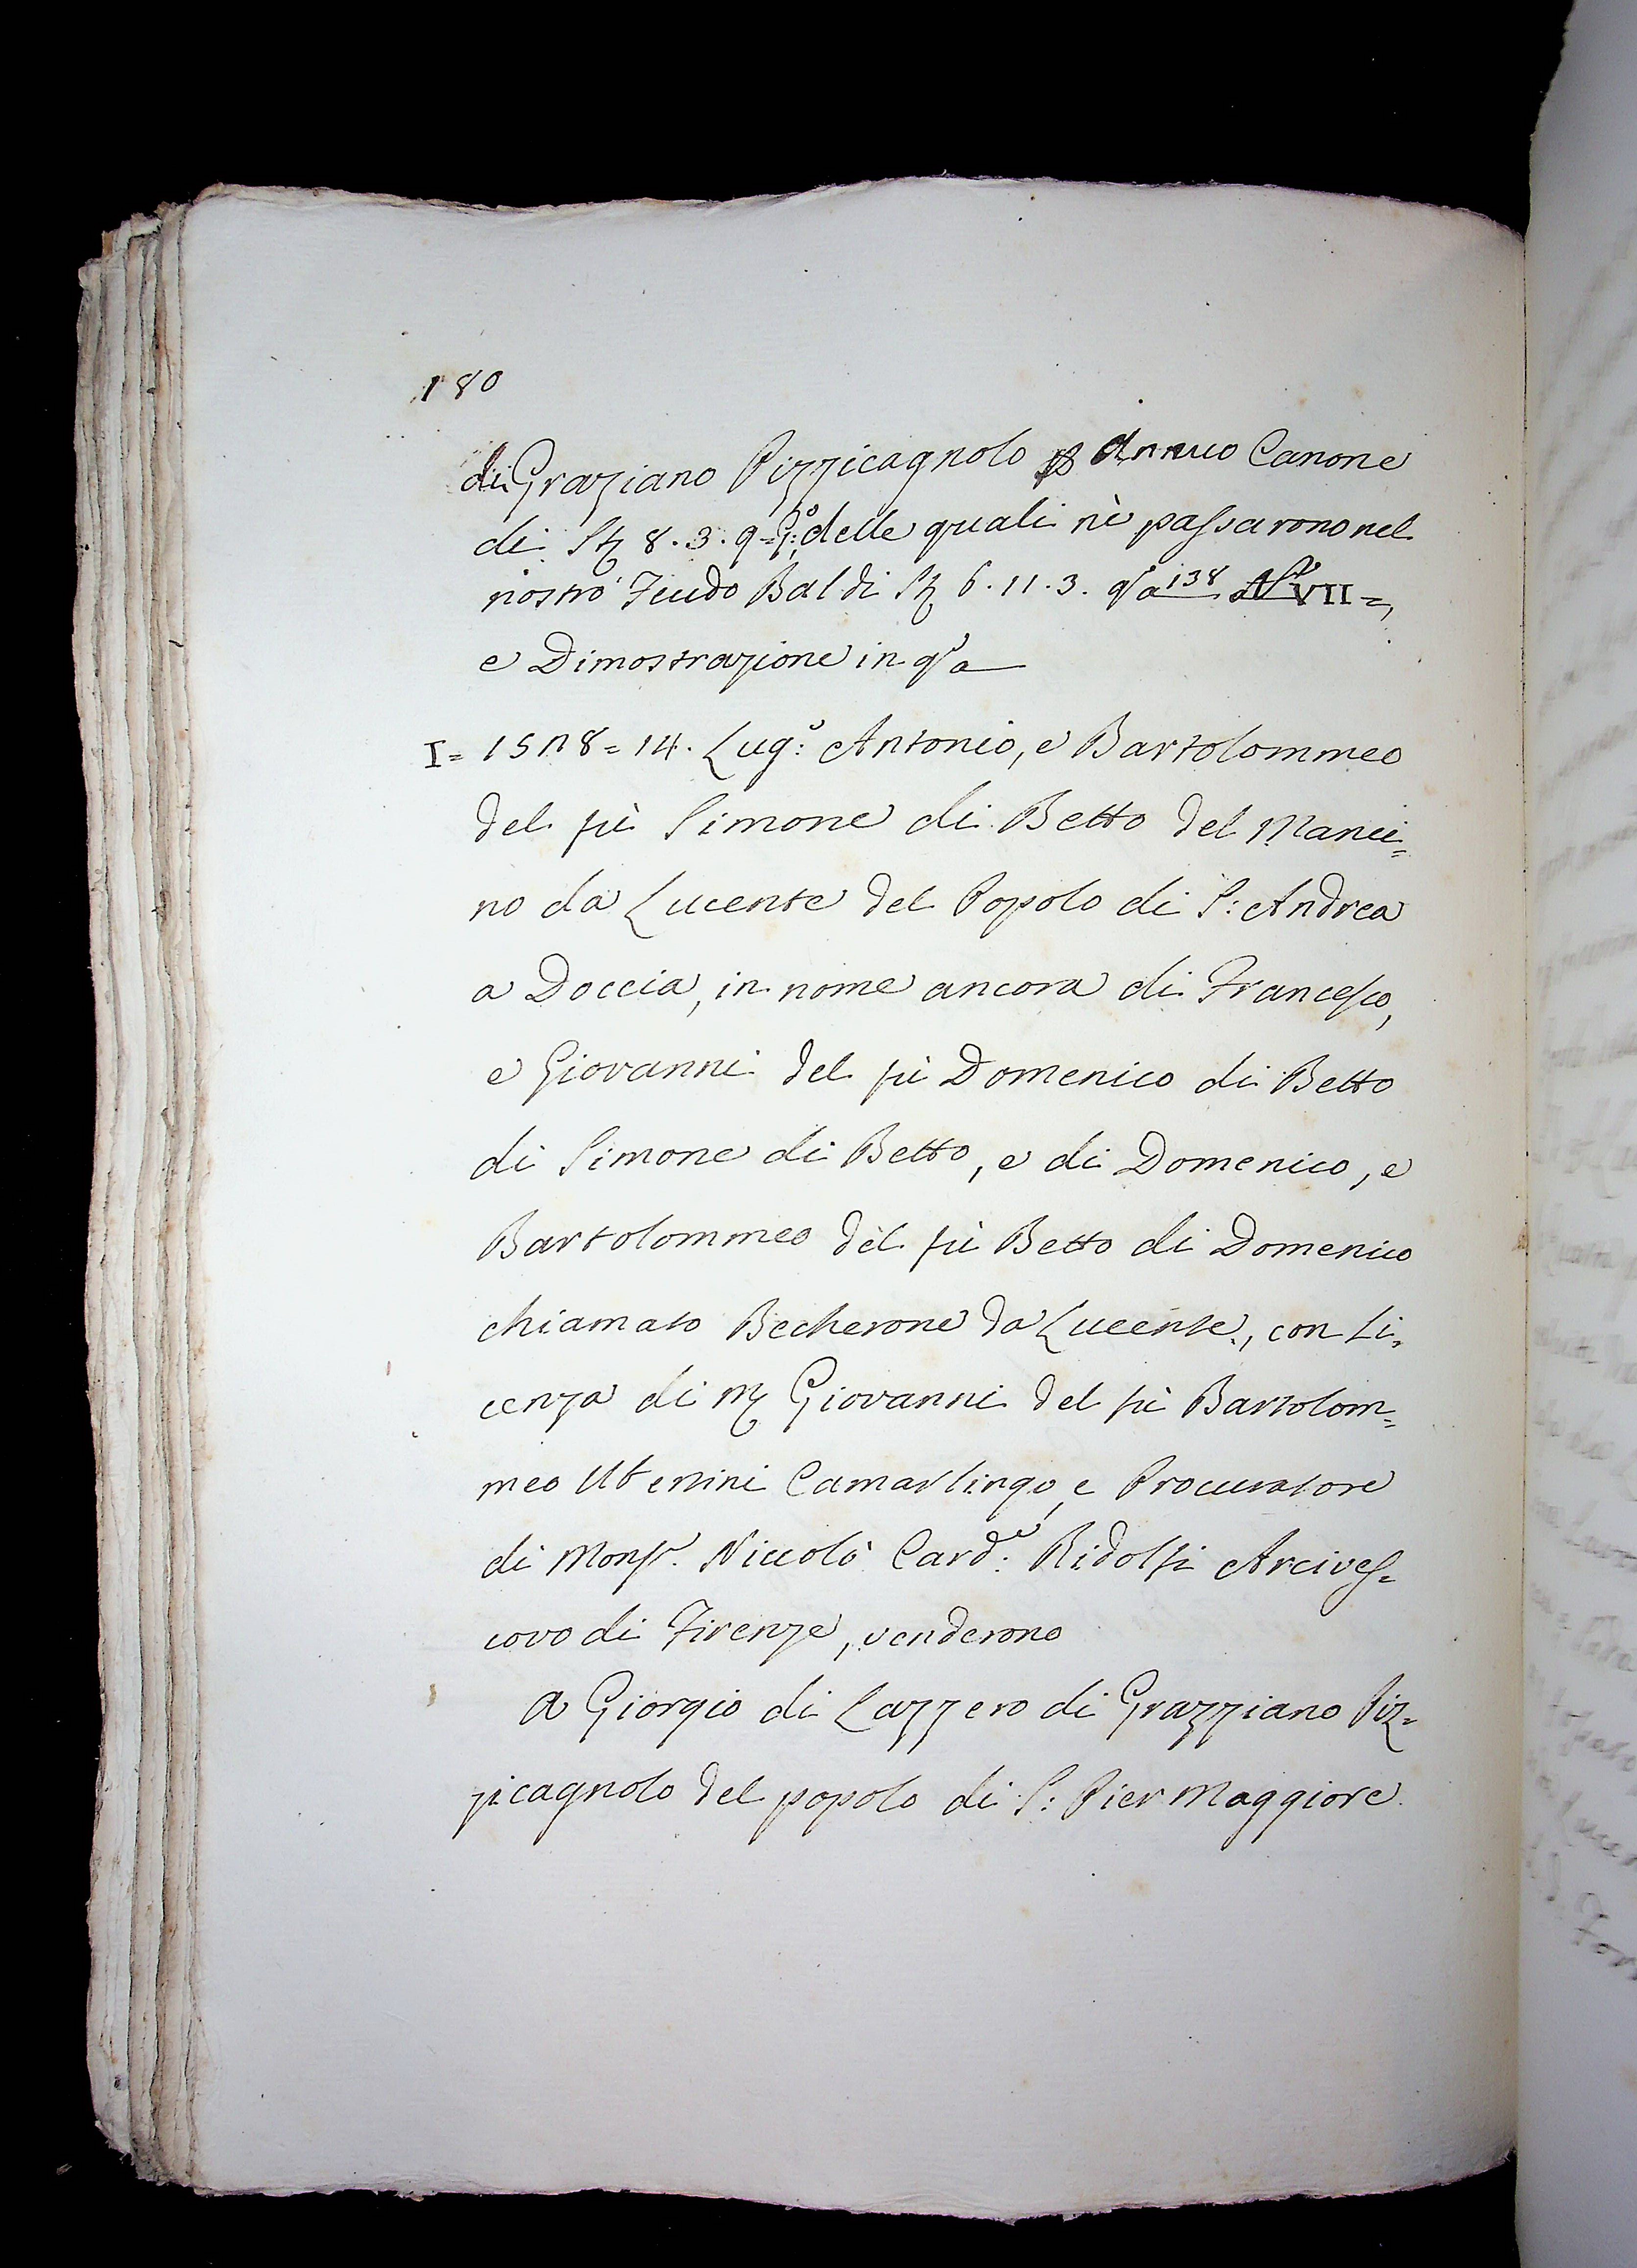 180
di Graziano Pizzicagnolo p Annuo Canone
di St 8. 3. 9 = G:º delle quali nè passarono nel
nostro Feudo Baldi St 6. 11. 3. qta 138 Nº VII =,
e Dimostrazione in qta
I = 1528 = 14. Lug:º Antonio, e Bartolommeo
del fù Simone di Betto del Manci=
no da Lucente del Popolo di S: Andrea
a Doccia, in nome ancora di Francesco,
e Giovanni del fù Domenico di Betto
di Simone di Betto, e di Domenico, e
Bartolommeo del fù Betto di Domenico
chiamato Becherone da Lucente, con Li=
cenza di M Giovanni del fù Bartolom=
meo Ubertini Camarlingo, e Procuratore
di Monsr. Niccolò Card:e Ridolfi Arcives=
covo di Firenze, venderono
a Giorgio di Lazzero di Grazziano Piz=
zicagnolo del popolo di S: Pier Maggiore